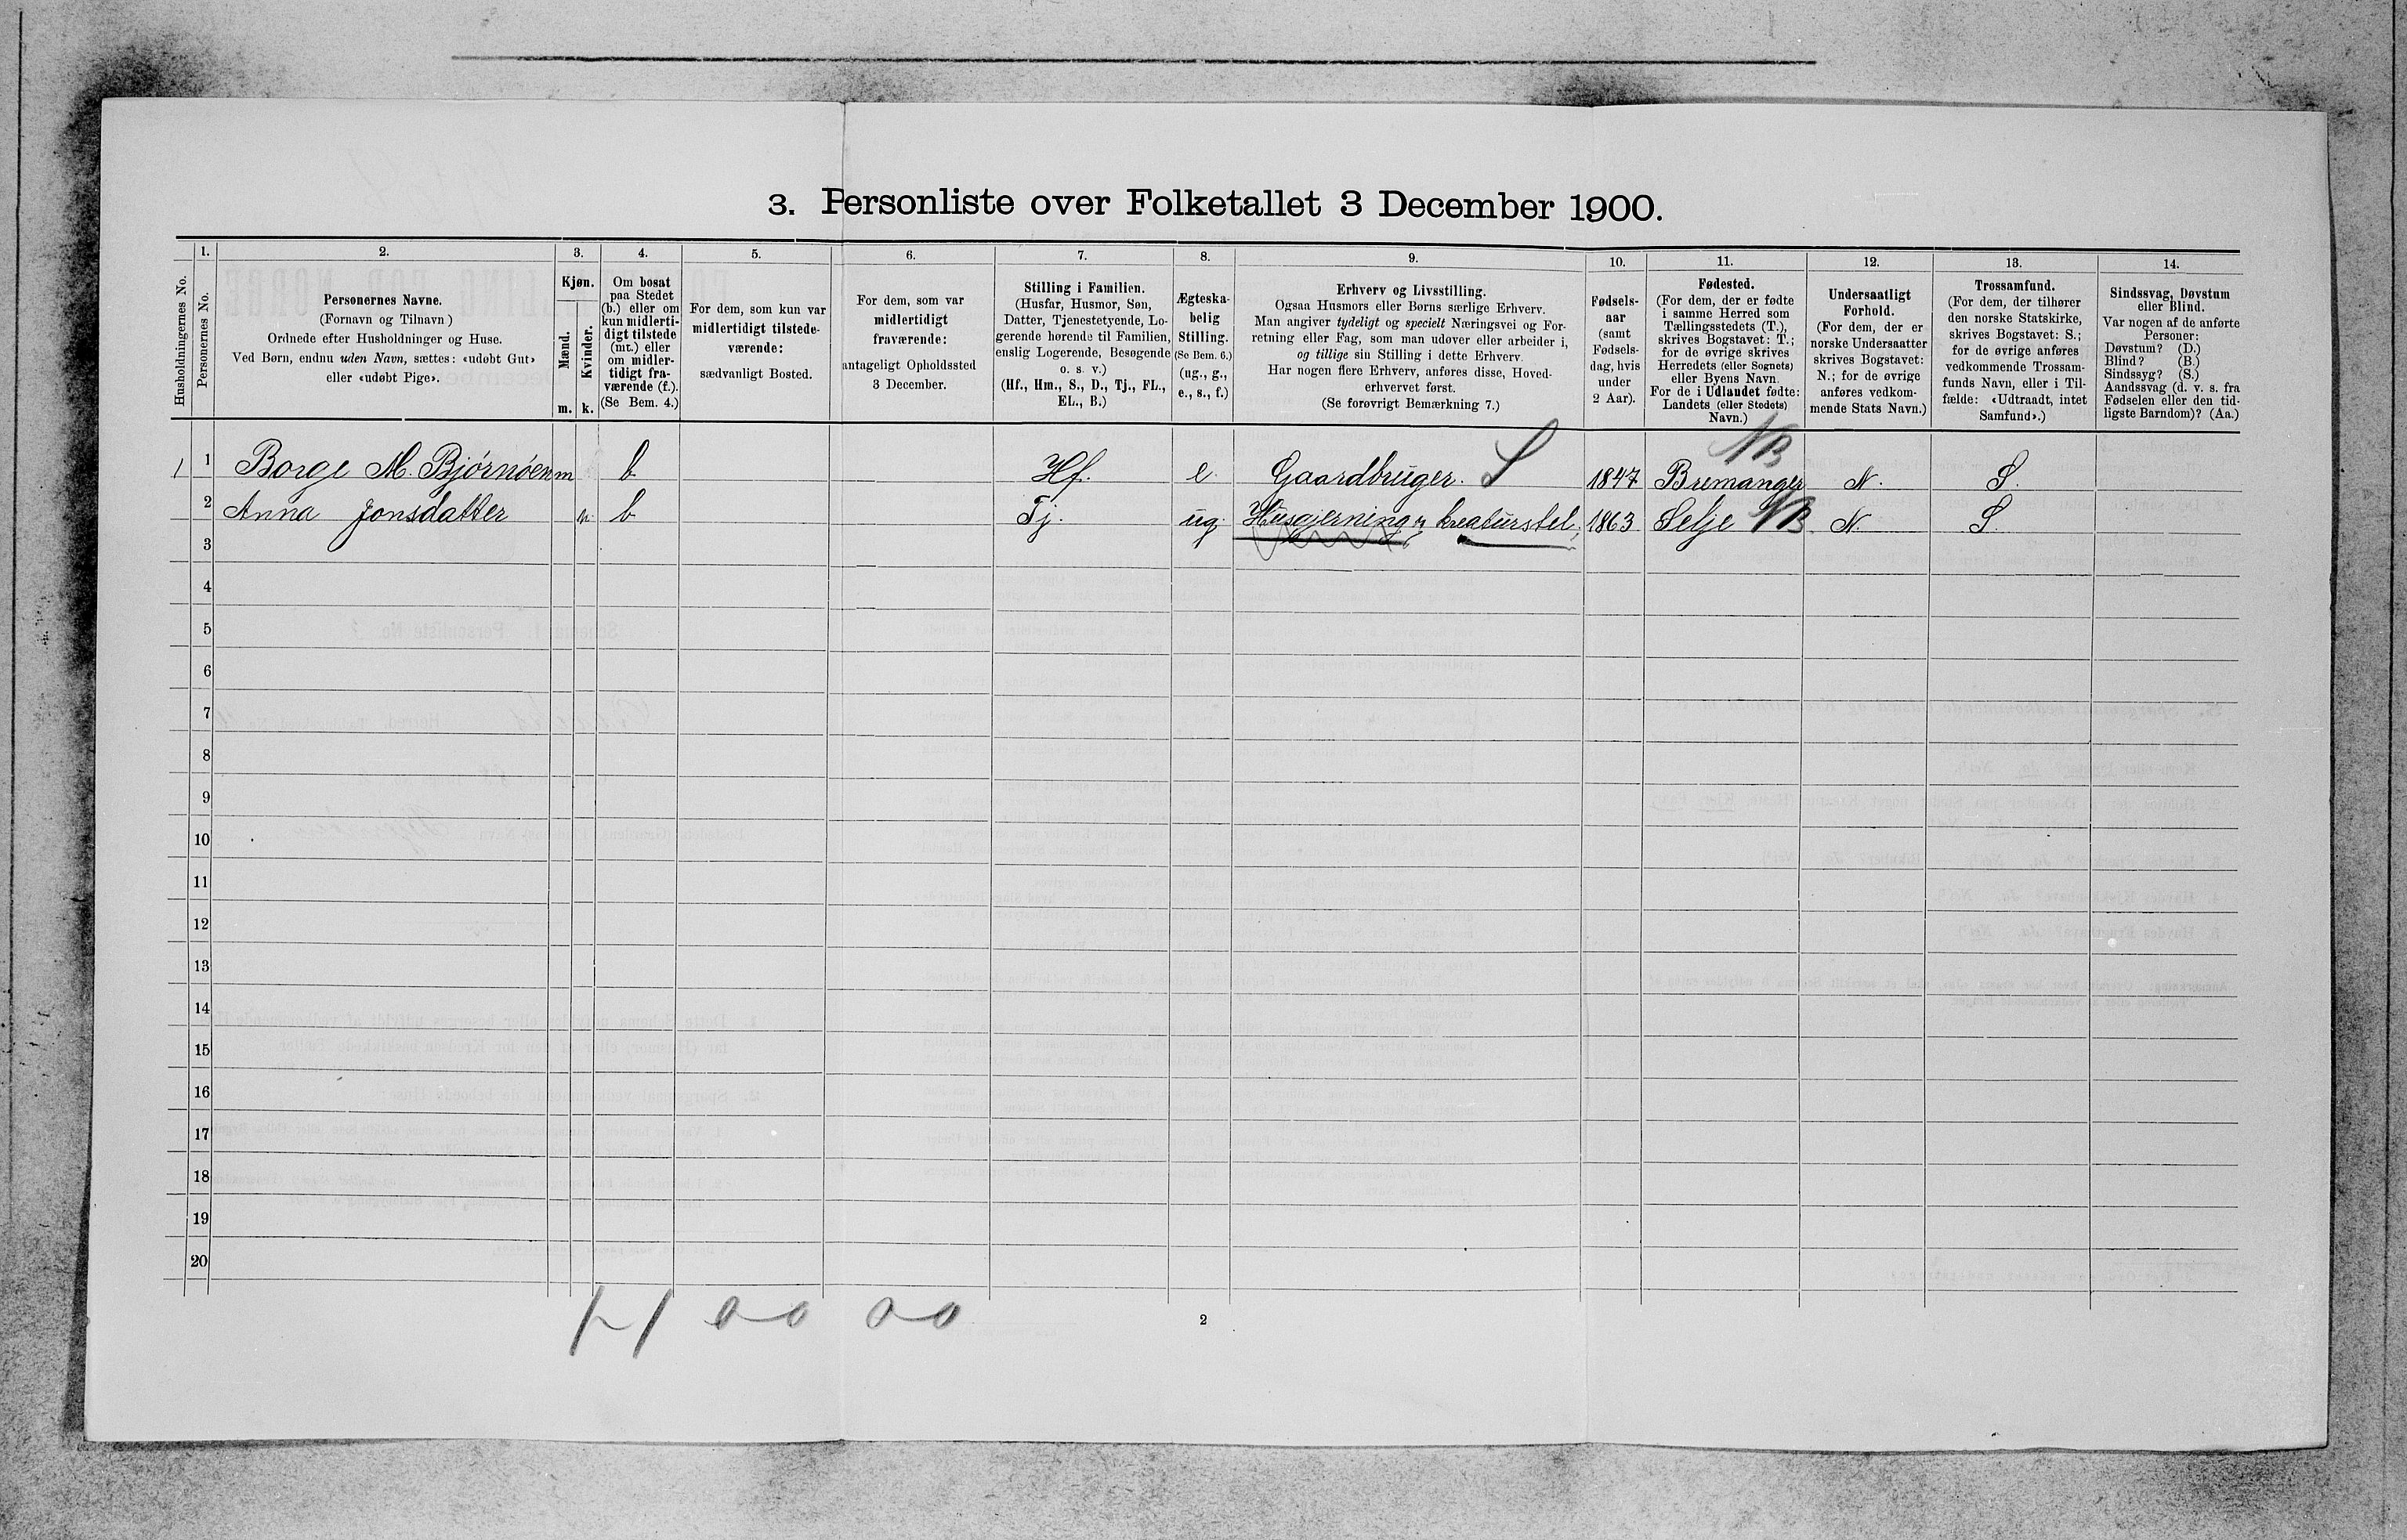 3. Personliste over Folketallet 3 December 1900.
1. 2. 3. 4. 5. 6. 7. 8. 9. 10. 11. 12. 13. 14.
Husholdningernes No.
Personernes No.
Personernes Navne.
(Fornavn og Tilnavn)
Ordnede efter Husholdninger og Huse.
Ved Børn, endnu uden Navn, sættes: «udøbt Gut»
eller «udøbt Pige».
Kjøn.
Mænd.
Kvinder.
m. k.
Om bosat
paa Stedet
(b.) eller om
kun midlerti-
digt tilstede
(mt.) eller
om midler-
tidigt fra-
værende (f.).
(Se Bem. 4.)
For dem, som kun var
midlertidigt tilstede-
værende:
sædvanligt Bosted.
For dem, som var
midlertidigt
fraværende:
antageligt Opholdssted
3 December.
Stilling i Familien.
(Husfar, Husmor, Søn,
Datter, Tjenestetyende, Lo-
gerende hørende til Familien,
enslig Logerende, Besøgende
o. s. v.)
(Hf., Hm., S., D., Tj., FL.,
EL., B.)
Ægteska-
belig
Stilling.
(Se Bem. 6.)
(ug., g.,
e., s., f.)
Erhverv og Livsstilling.
Ogsaa Husmors eller Børns særlige Erhverv.
Man angiver tydeligt og specielt Næringsvei og For-
retning eller Fag, som man udøver eller arbeider i,
og tillige sin Stilling i dette Erhverv.
Har nogen flere Erhverv, anføres disse, Hoved-
erhvervet først.
(Se forøvrigt Bemærkning 7.)
Fødsels-
aar
(samt
Fødsels-
dag, hvis
under
2 Aar).
Fødested.
(For dem, der er fødte
i samme Herred som
Tællingsstedets (T.),
skrives Bogstavet: T.;
for de øvrige skrives
Herredets (eller Sognets)
eller Byens Navn.
For de i Udlandet fødte:
Landets (eller Stedets)
Navn.)
Undersaatligt
Forhold.
(For dem, der er
norske Undersaatter
skrives Bogstavet:
N.; for de øvrige
anføres vedkom-
mende Stats Navn.)
Trossamfund.
(For dem, der tilhører
den norske Statskirke,
skrives Bogstavet: S.;
for de øvrige anføres
vedkommende Trossam-
funds Navn, eller i Til-
fælde: «Udtraadt, intet
Samfund».)
Sindssvag, Døvstum
eller Blind.
Var nogen af de anførte
Personer:
Døvstum? (D.)
Blind? (B.)
Sindssyg? (S.)
Aandssvag (d. v. s. fra
Fødselen eller den tid-
ligste Barndom)? (Aa.)
NB
1 1 Borge M. Bjørnøen m b Hf. e. Gaardbruger. S 1847 Bremanger N. S.
2 Anna Jonsdatter k b Tj. ug. Husgjerning og kreaturstel, 1863 Selje NB N. S.
3
4
5
6
7
8
9
10
11
12
13
14
15
16
17
18
19
20
1-1 0-0 0-0
2